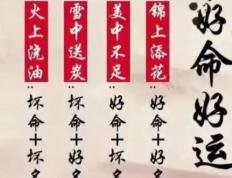 好命好运
锦上添花:好命+好
美中不足:好命+坏
雪中送炭:坏命+好
火上浇油:坏命+坏